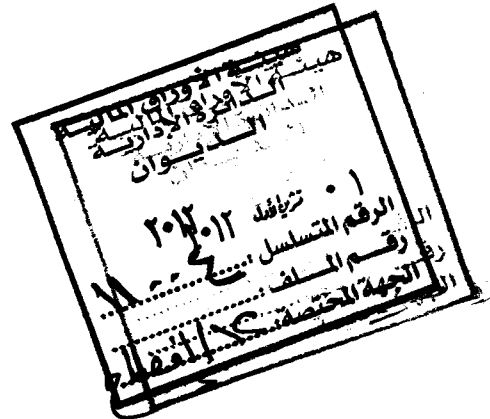 هيئة الأوراق المالية
الدائرة الإدارية
الديوان
٠١ تشرين أول ٢٠١٢
الرقم المتسلسل :
رقم الملف :
الجهة المختصة : الافصاح